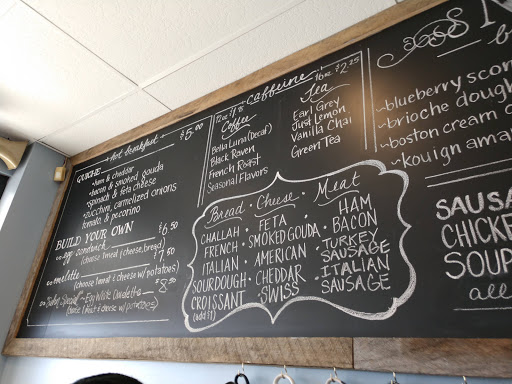 Hot breakfast
QUICHE $5.00
~ham & cheddar
~bacon & smoked gouda
~spinach & feta cheese
~zucchini, carmelized onions
tomato, & pecorino
BUILD YOUR OWN
egg sandwich $6.50
(choose 1 meat, cheese, bread)
omelette $7.50
(choose 1 meat & cheese w/ potatoes)
Special ~ Egg White Omelette $8.50
(meat & cheese w/ potatoes)
Caffeine
12oz. $1.75
16oz $2.25
Coffee
Bella Luna (Decaf)
Black Raven
French Roast
Seasonal Flavors
Tea
Earl Grey
Just Lemon
Vanilla Chai
Green Tea
Bread · Cheese · Meat
CHALLAH
FRENCH
ITALIAN
SOURDOUGH
CROISSANT
(add $1)
FETA
SMOKED GOUDA
AMERICAN
CHEDDAR
SWISS
HAM
BACON
TURKEY
SAUSAGE
ITALIAN
SAUSAGE
~blueberry scon
~brioche dough
~boston cream d
~kouign ama
SAUSA
CHICKE
SOUP
all